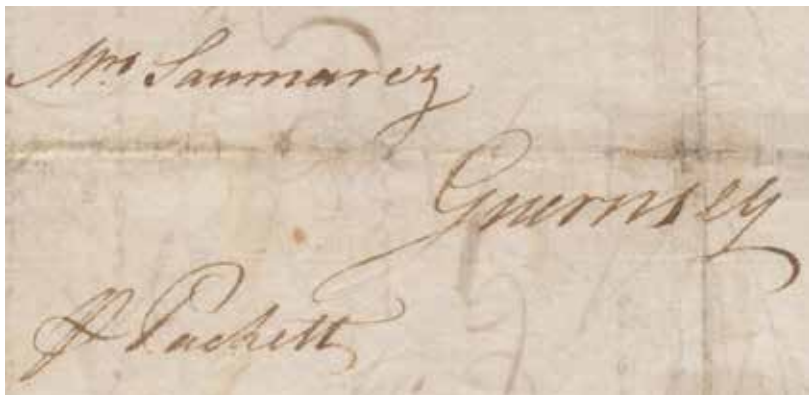 Mrs Saumarez
Guernsey
pr Packett